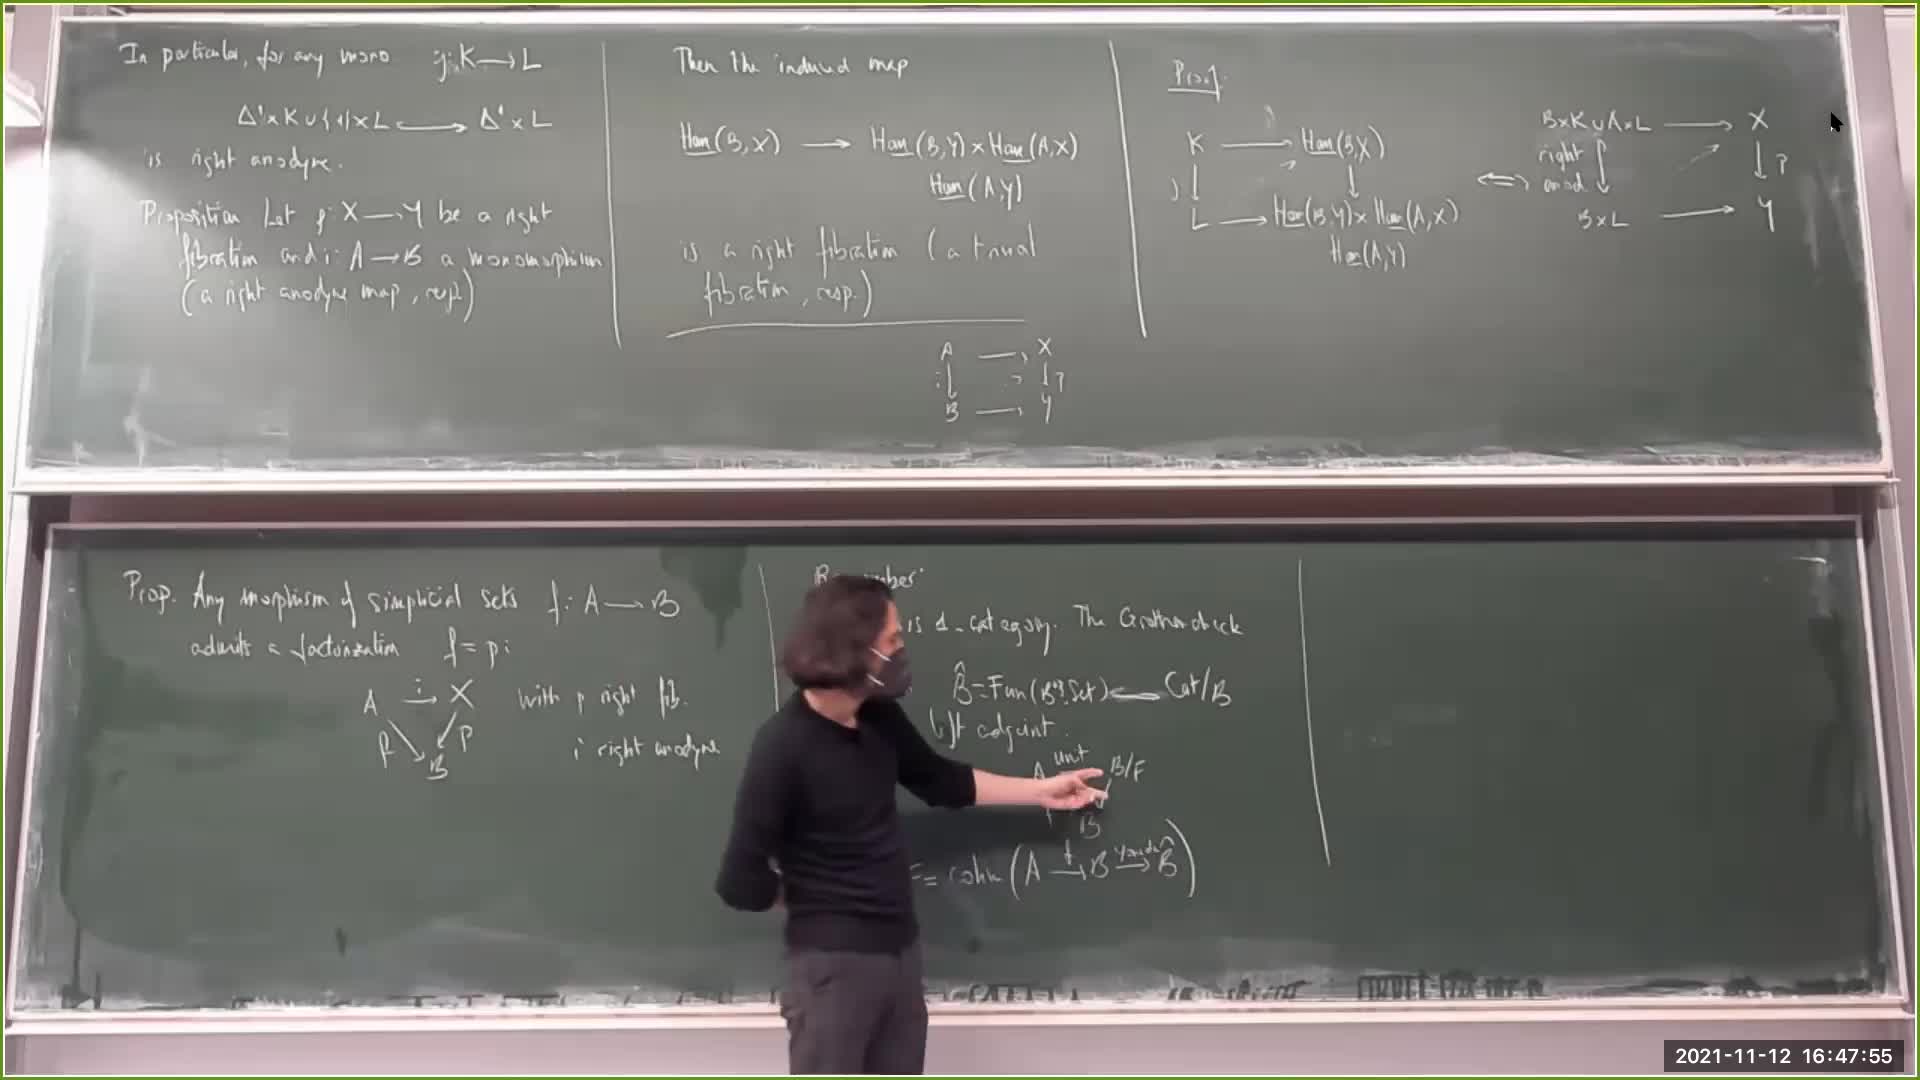 In particular, for any mono j: K → L
Δ¹×K ∪ {1}×L ↪ Δ¹×L
is right anodyne.
Proposition Let p: X → Y be a right
fibration and i: A → B a monomorphism
(a right anodyne map, resp.)
Then the induced map
Hom(B,X) → Hom(B,Y) × Hom(A,X)
Hom(A,Y)
is a right fibration (a trivial
fibration, resp.)
A → X
i ↓ ↓ p
B → Y
Proof:
K → Hom(B,X)
↓ ↓
L → Hom(B,Y) × Hom(A,X)
Hom(A,Y)
⟺
B×K ∪ A×L → X
right
anod. ↓ p
B×L → Y
Prop. Any morphism of simplicial sets f: A → B
admits a factorization f = pi
A →i X with p right fib.
f p i right anodyne
B
is 1-category. The Grothendieck
B̂ = Fun(B^op, Set) ↪ Cat/B
left adjoint.
A unit B/F
B
F = colim (A →f B →Yoneda B̂)
2021-11-12 16:47:55